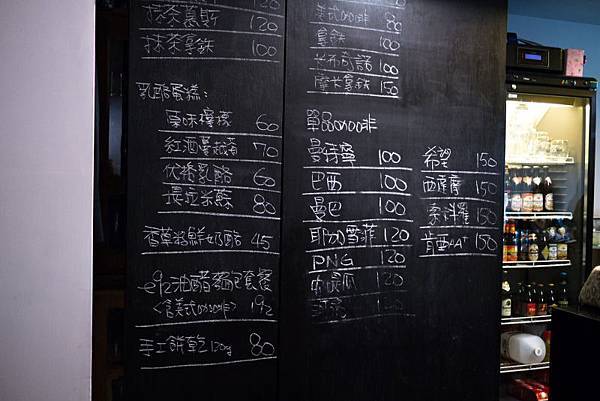 抹茶慕斯 120
抹茶拿鉄 100
乳酪蛋糕:
原味檸檬 60
紅酒蔓越莓 70
優格乳酪 60
提拉米蘇 80
香草籽鮮奶酪 45
油醋麵包套餐
<含美式> 192
手工餅乾120g 80
美式 80
拿鉄 100
卡布奇諾 100
摩卡拿鉄 150
單品
曼特寧 100
巴西 100
曼巴 100
耶加雪菲 120
PNG 120
120
希望 150
西達摩 150
150
肯亞AA+ 150